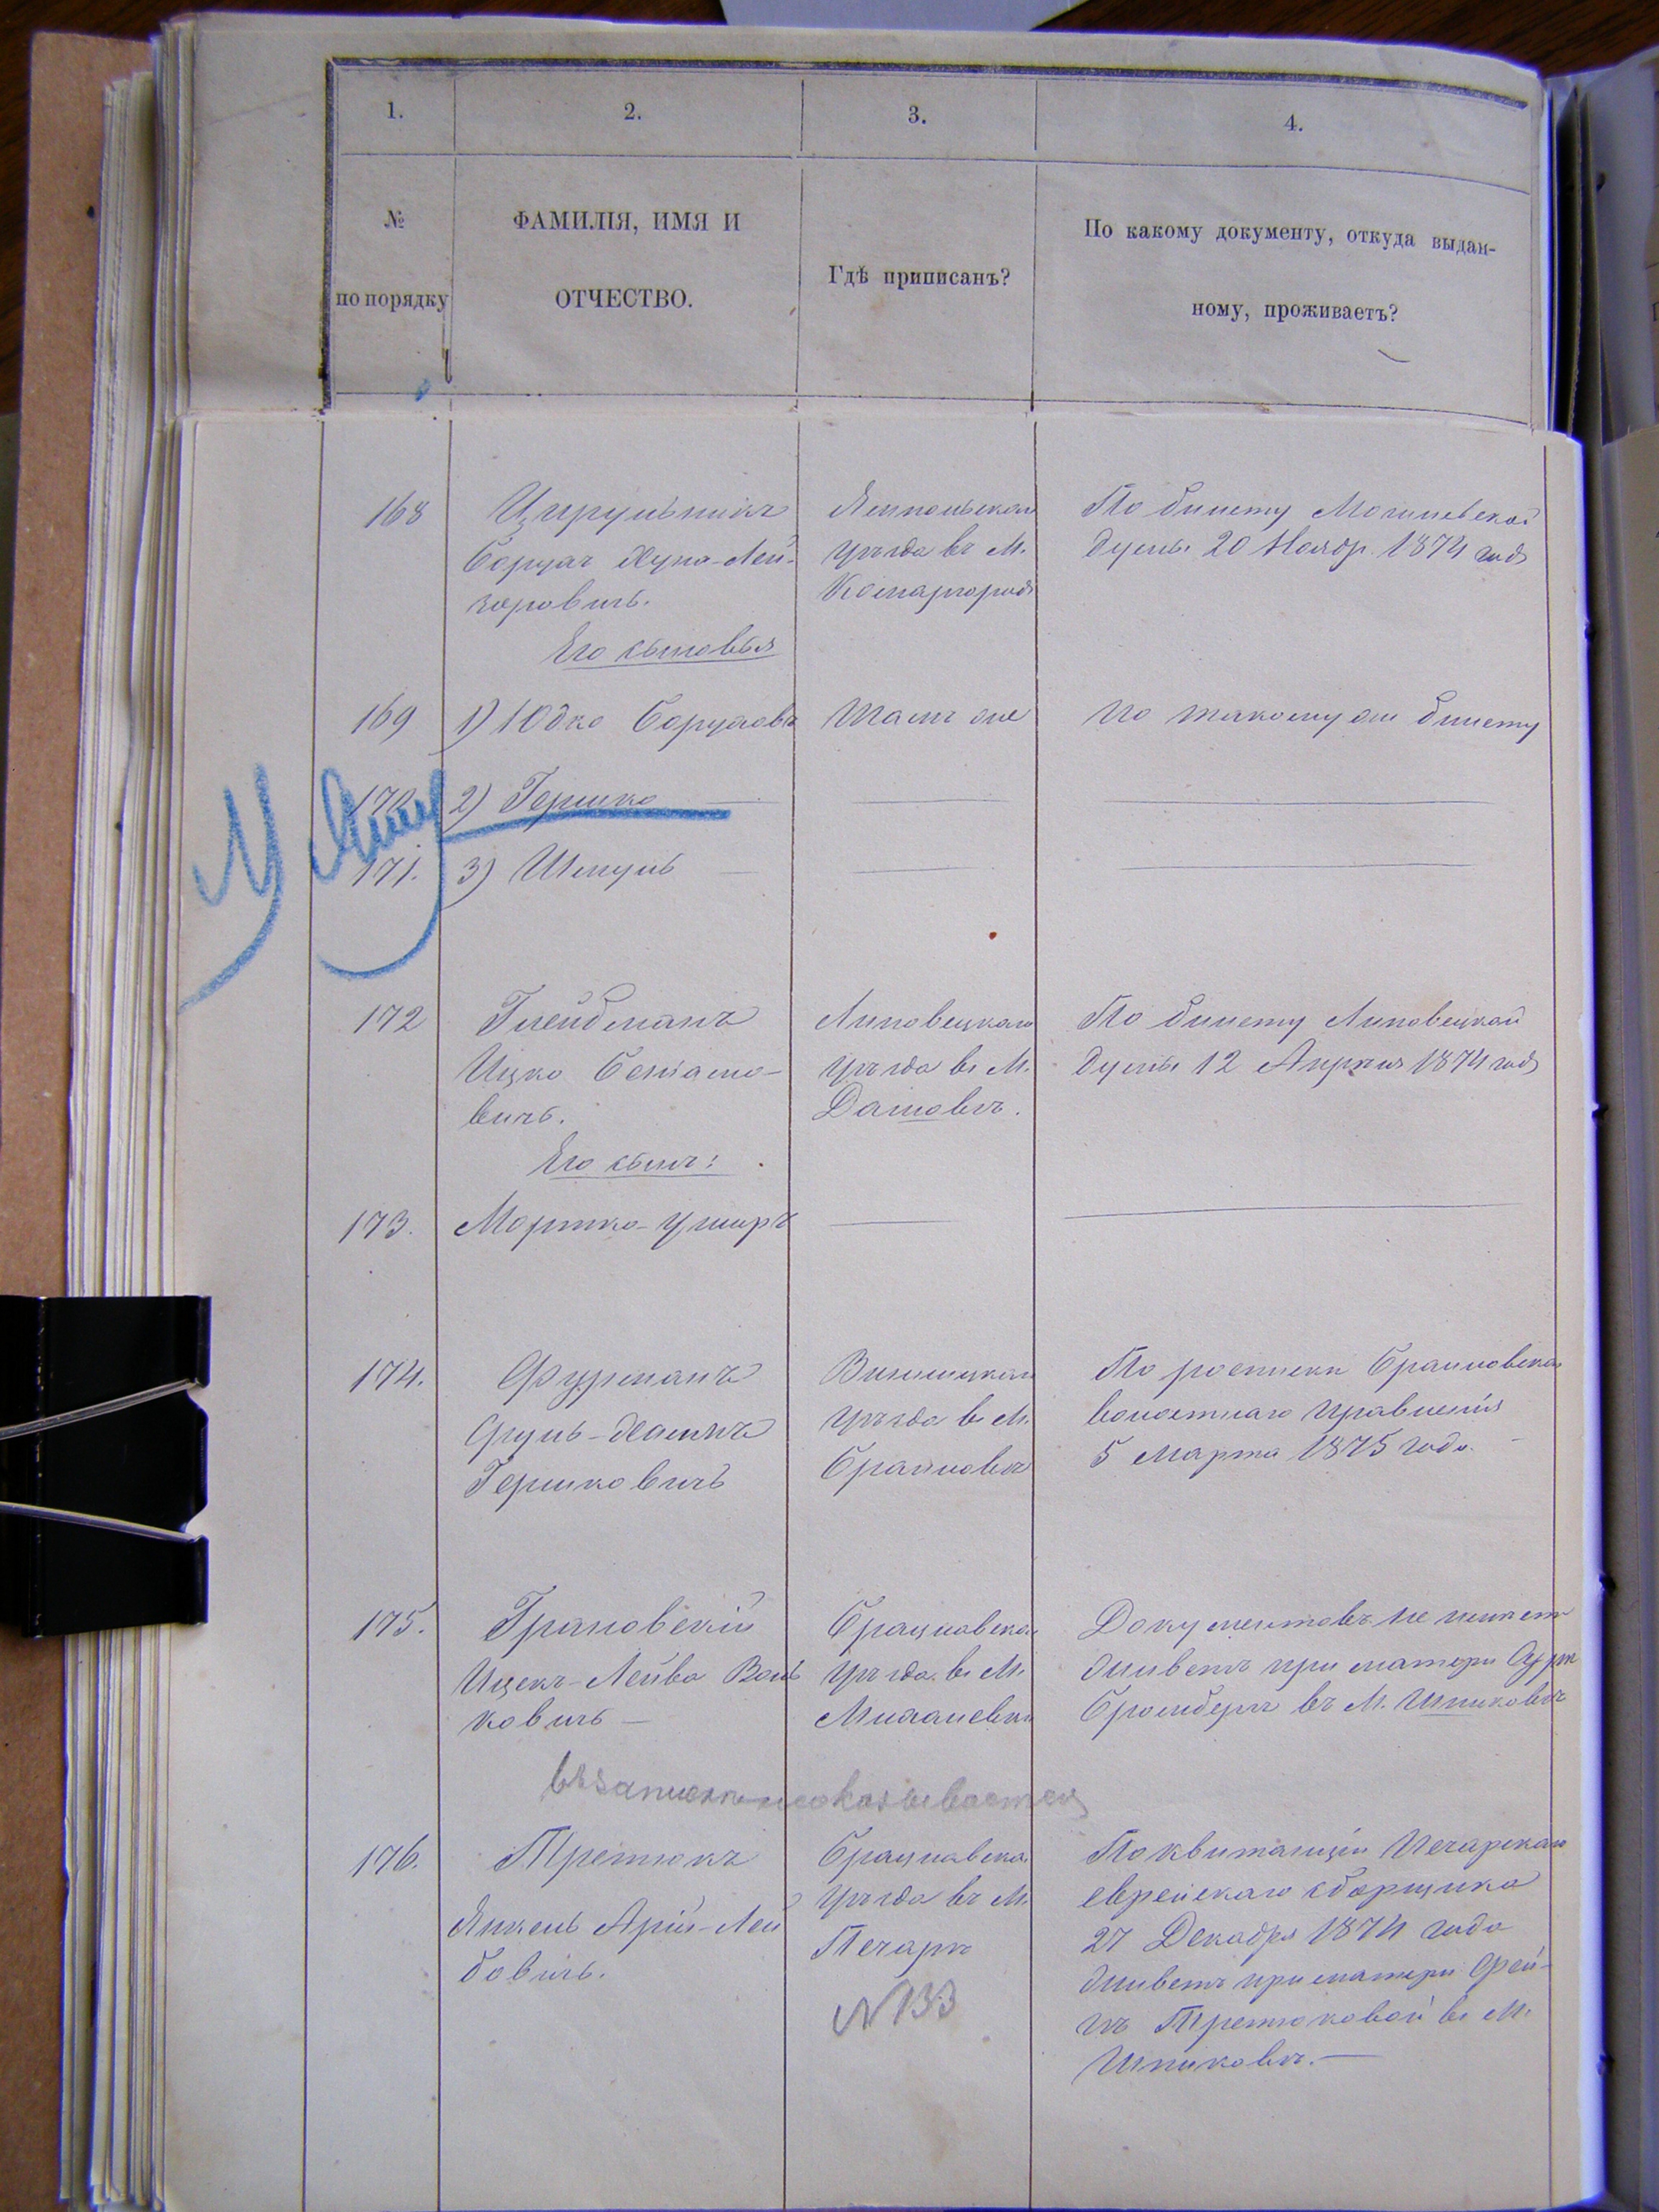 1.
2.
3.
4.
№
по порядку
ФАМИЛІЯ, ИМЯ И
ОТЧЕСТВО.
Гдѣ приписанъ?
По какому документу, откуда выдан-
ному, проживаетъ?
168
Цирульникъ
Борухъ Хуна-Лей-
зоровичъ.
Его сыновья
Ямпольскаго
уѣзда въ М.
Комаргородѣ
По билету Могилевской
думы 20 Ноября 1874 года
169
1) Юдко Боруховъ
Тамъ же
По такому же билету
170.
2) Гершко
171.
3) Шмуль
172
Глейдманъ
Ицко Беніамо-
вичъ.
Его сынъ:
Липовецкаго
уѣзда въ М.
Дашовъ.
По билету Липовецкой
думы 12 Апрѣля 1874 года
173.
Мортко-Ушеръ
174.
Фурманъ
Сруль-Хаимъ
Гершковичъ
Винницкаго
уѣзда въ М.
Браиловъ
По роспискѣ Браиловскаго
волостнаго правленія
5 Марта 1875 года.
175.
Грановскій
Ицекъ-Лейба Воль
ковичъ
Брацлавска
уѣзда въ М.
Документовъ не имѣетъ
живетъ при матери Суре
Бромбергъ въ М. Шпиковѣ
176.
Третюкъ
Янкель Арій-Лей
бовичъ.
Брацлавска
уѣзда въ М.
Печарѣ
N 133
По квитанціи Печарскаго
еврейскаго сборщика
27 Декабря 1874 года
живетъ при матери Фей-
гѣ Третюковой въ М.
Шпиковѣ.